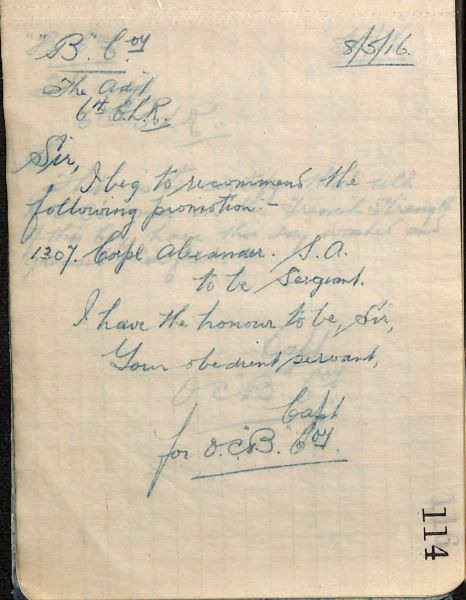 "B." Coy 8/5/16.
The Adjt
6th C.L.R.
Sir,
I beg to recommend the
following promotion:-
1307. Corpl Alexander. S.A.
to be Sergeant.
I have the honour to be, Sir,
Your obedient servant,
Capt
for O.C. "B." Coy.
114